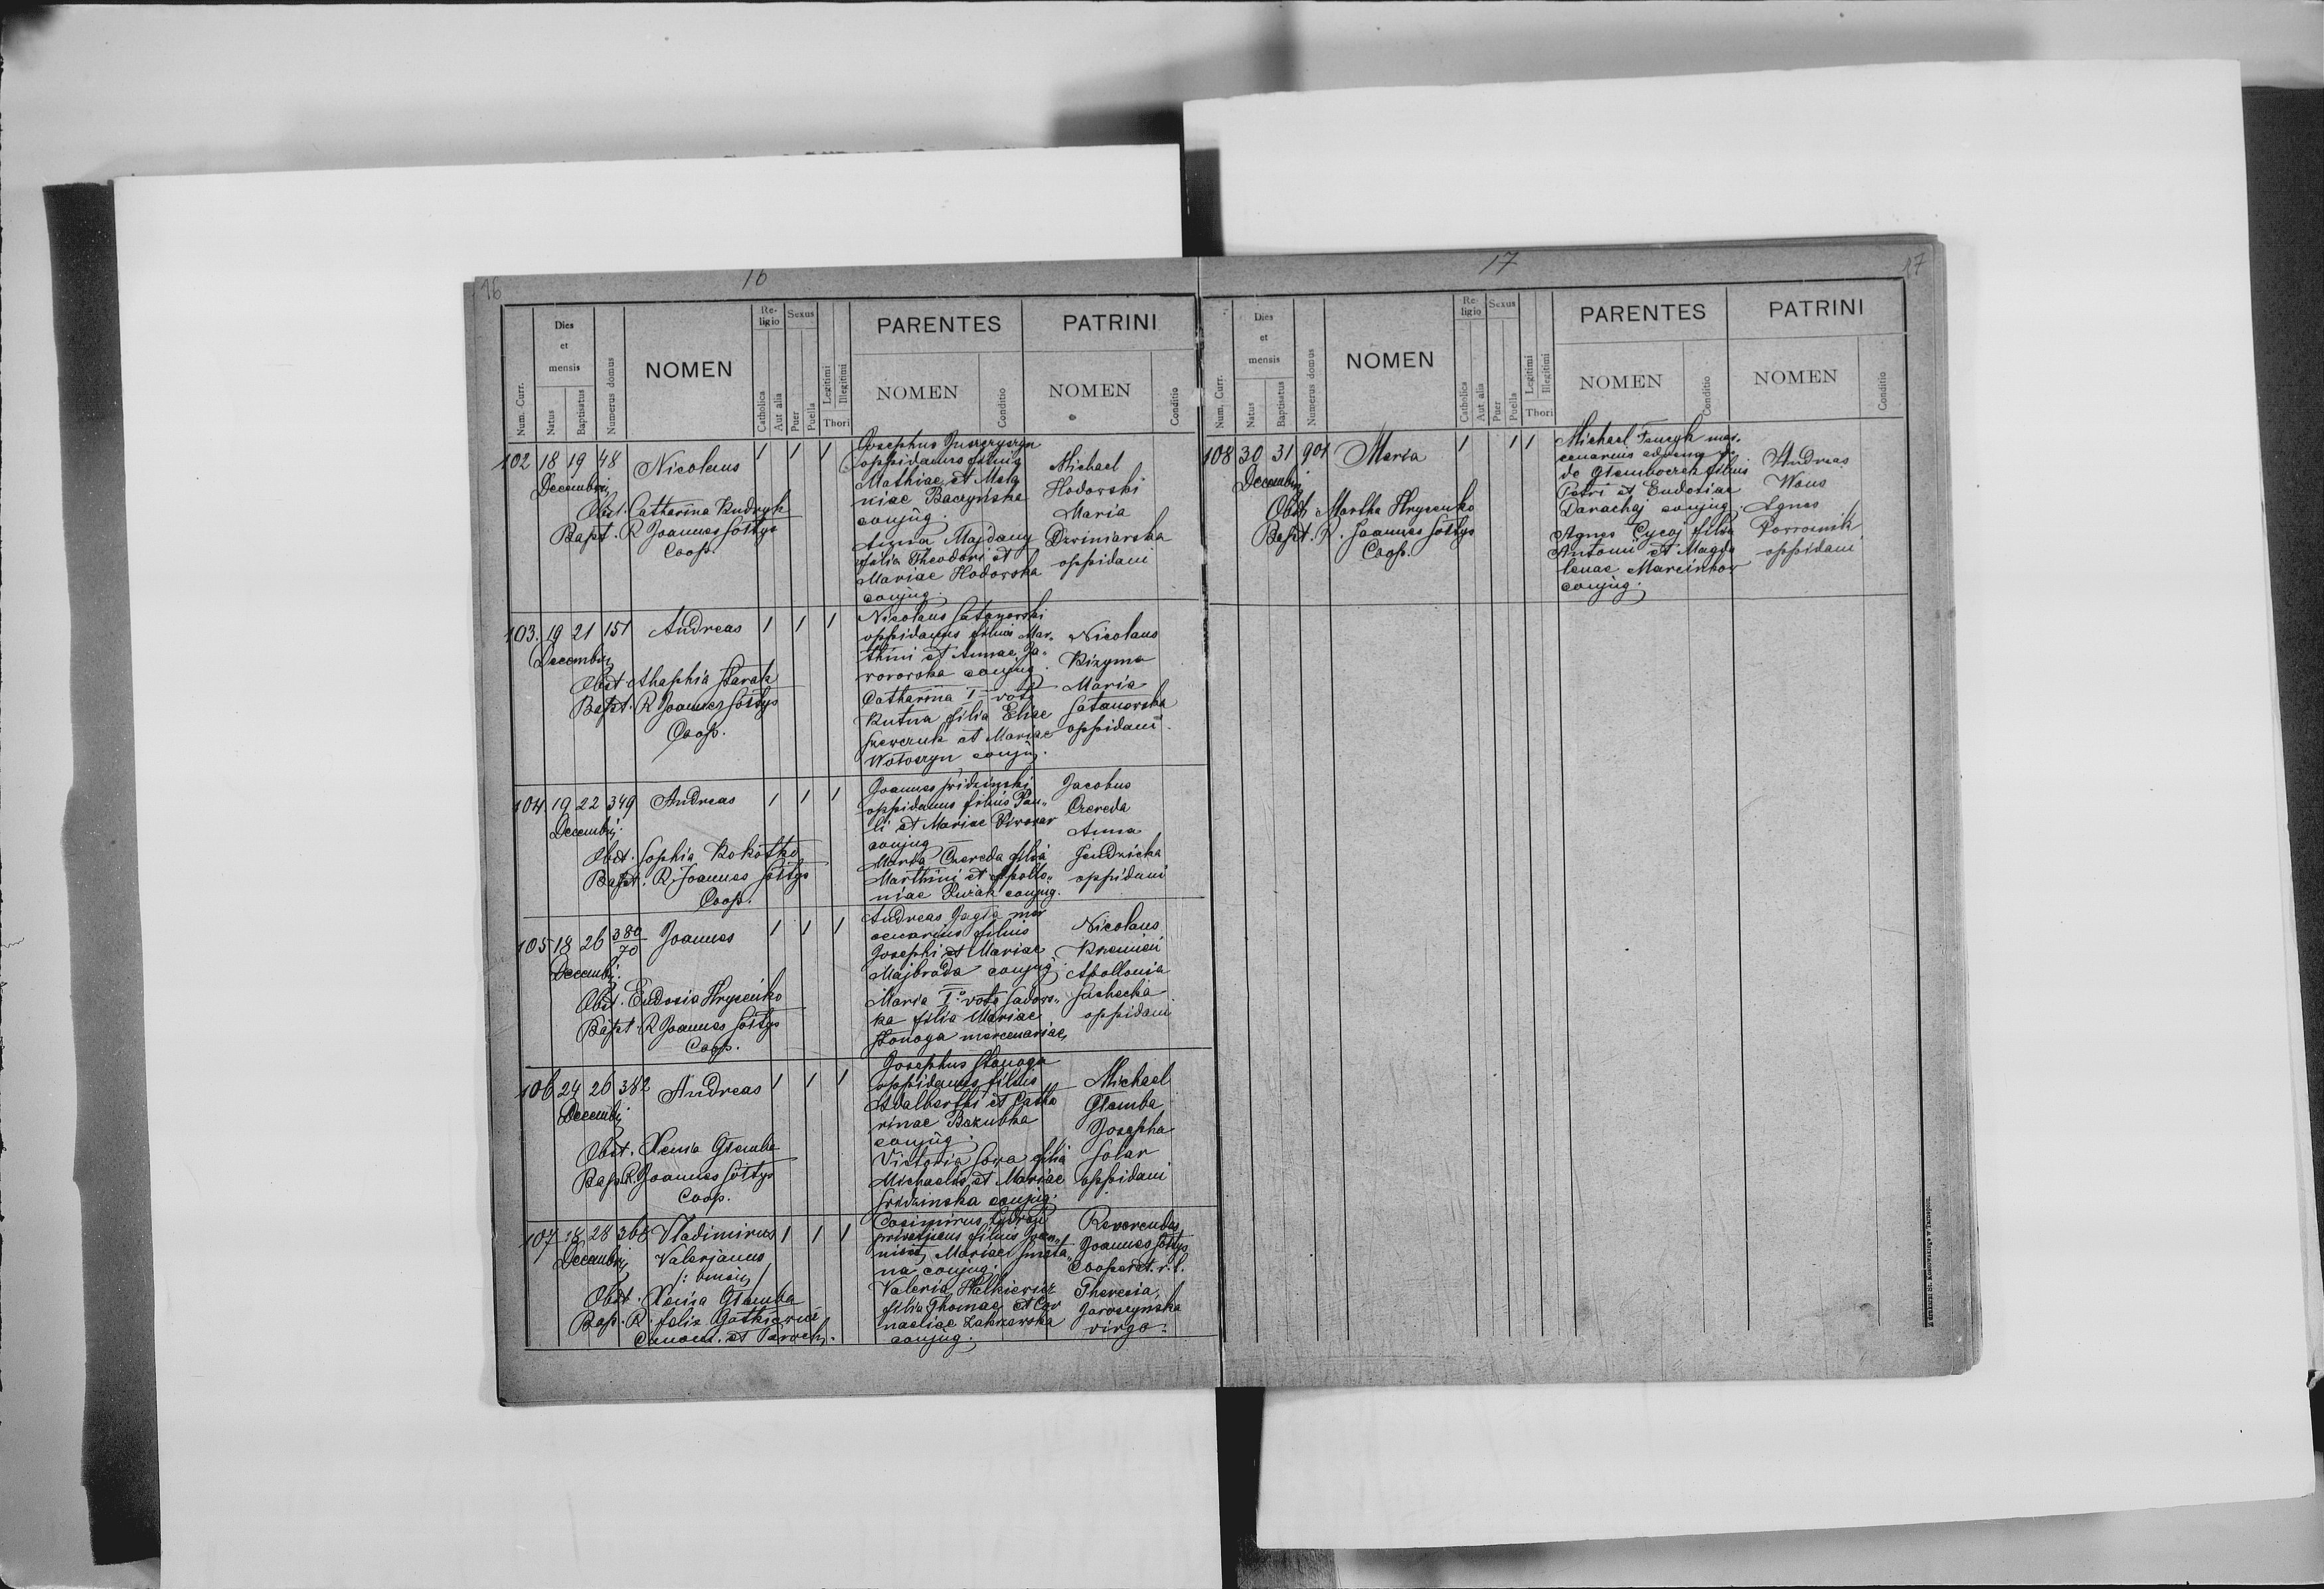 16
16
Num. Curr.
Dies et mensis
Natus
Baptisatus
Numerus domus
NOMEN
Religio
Catholica
Aut alia
Sexus
Puer
Puella
Legitimi
Illegitimi
Thori
PARENTES
NOMEN
Conditio
PATRINI
NOMEN
Conditio
102 18 19 48 Nicolaus 1 1 1
Decembris
Obst. Catharina Kudryk
Bapt. R Joannes Sołtys
Coop.
Josephus
oppidanus filius
Mathiae et Mela
niae Baczyńska
conjug.
Anna Majdany
filia Theodori et
Mariae Hodorska
conjug.
Michael
Hodorski
Maria
Dzwiniarska
oppidani
103. 19 21 151 Andreas 1 1 1
Decembris
Obst. Ahaphia Starak
Bapt. R Joannes Sołtys
Coop.
Nicolaus Satanowski
oppidanus filius Mar-
thini et Annae Ja-
worowska conjug.
Catharina I voto
Kutna filia Eliae
Szewczuk et Mariae
Wołoszyn conjug.
Nicolaus
Kizyma
Maria
Satanowska
oppidani
104 19 22 349 Andreas 1 1 1
Decembris
Obst. Sophia Kokotko
Bapt. R. Joannes Sołtys
Coop.
Joannes
oppidanus filius Pau-
li et Mariae Piwowar
conjug
Maria Czereda filia
Marthini et Apollo-
niae conjug.
Jacobus
Czereda
Anna
Jendzicka
oppidani
105 18 26 380/70 Joannes 1 1 1
Decembris
Obst. Eudosia Hrycenko
Bapt. R Joannes Sołtys
Coop.
Andreas Jagła mer
cenarius filius
Josephi et Mariae
Majbroda conjug.
Maria I voto Sadow-
ka filia Mariae
Stonoga mercenariae
Nicolaus
Kremień
Apollonia
Sachecka
oppidani
106 24 26 382 Andreas 1 1 1
Decembris
Obst. Xenia Głemba
Bap. R. Joannes Sołtys
Coop.
Josephus Stonoga
oppidanus filius
Adalberthi et Catha
rinae Bakubka
conjug.
Victoria Sowa filia
Michaelis et Mariae
Sridzinska conjug.
Michael
Głemba
Josepha
Solar
oppidani
107 18 28 368 Vladimirus 1 1 1
Decembris Valerjanus
Obst. Xenia Głemba
Bap. R. Felix Gątkiewicz
Canon. et Paroch.
Casimirus
filius Joan-
nis et Mariae Smeta-
na conjug.
Valeria Halkiewicz
filia Thomae et Cor
neliae Zakrzewska
conjug.
Reverendus
Joannes Sołtys
Cooperat. r. l.
Theresia
Jaroszyńska
virgo.
17
17
Num. Curr.
Dies et mensis
Natus
Baptisatus
Numerus domus
NOMEN
Religio
Catholica
Aut alia
Sexus
Puer
Puella
Legitimi
Illegitimi
Thori
PARENTES
NOMEN
Conditio
PATRINI
NOMEN
Conditio
108 30 31 901 Maria 1 1 1
Decembris
Obst. Martha Hrycenko
Bapt. R. Joannes Sołtys
Coop.
Michael mer-
cenarius
de filius
Petri et Eudosiae
Darachaj conjug.
Agnes Cycaj filia
Antonii et Magda
lenae Marcinkow
conjug.
Andreas
Wons
Agnes
oppidani
Z drukarni St. Kossowskiego w Tarnopolu.